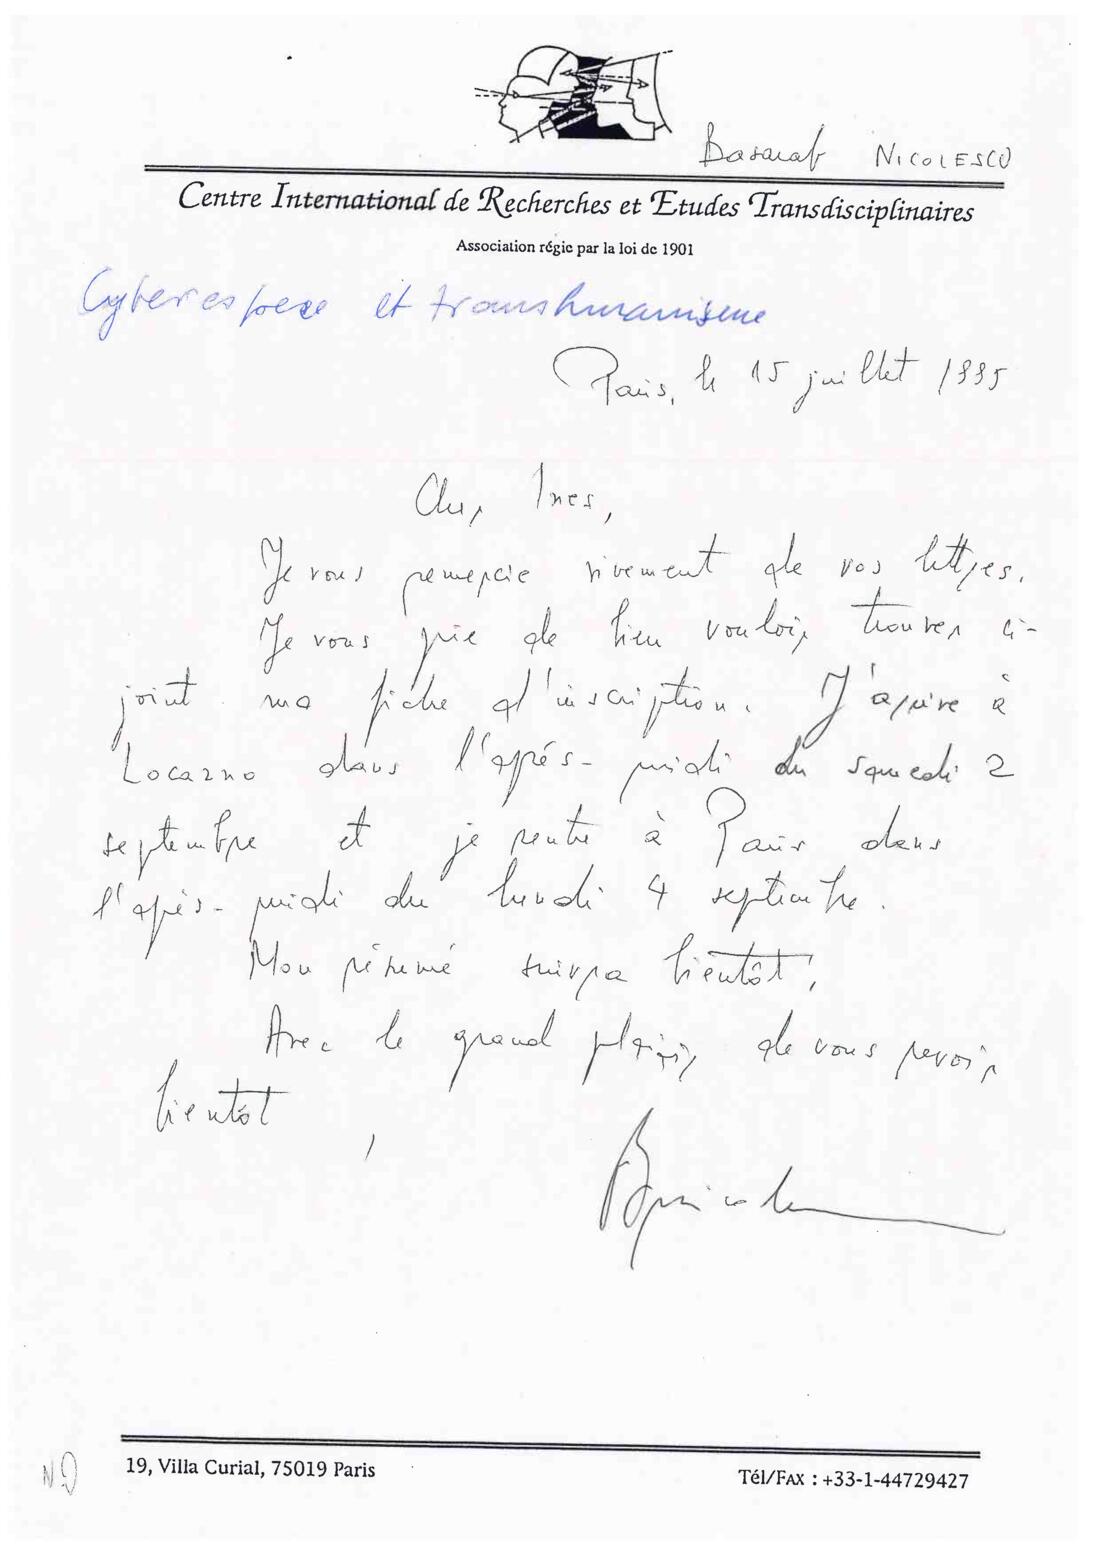 Basarab NICOLESCU
Centre International de Recherches et Etudes Transdisciplinaires
Association régie par la loi de 1901
Cyberespace et transhumanisme
Paris, le 15 juillet 1995
Ines,
Je vous remercie vivement de vos lettres.
Je vous prie de bien vouloir trouver ci-
joint ma fiche d'inscription. J'arrive à
Locarno dans l'après-midi du samedi 2
septembre et je rentre à Paris dans
l'après-midi du lundi 4 septembre.
Mon résumé suivra bientôt.
Avec le grand plaisir de vous revoir
bientôt,
19, Villa Curial, 75019 Paris
Tél/FAX : +33-1-44729427